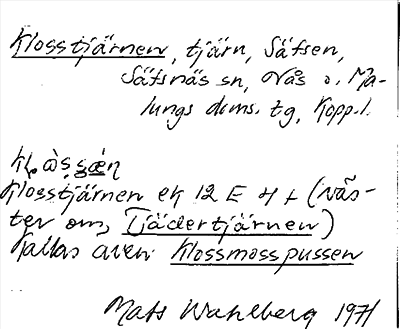 Klosstjärnen, tjärn, Säfsen,
Säfsnäs sn, Nås o. Ma-
lungs doms. tg, Kopp. l.
Klosstjärnen ek 12 E 4 f (väs-
ter om, Tjädertjärnen)
Kallas även Klossmosspussen
Mats Wahlberg 1971